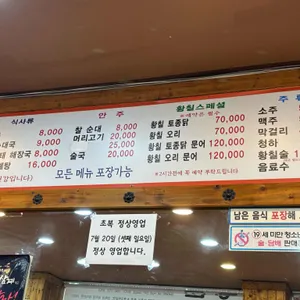 식사류
8,000
대국 9,000
해장국 8,000
탕 16,000
안 주
찰 순대 8,000
머리고기 20,000
25,000
술국 20,000
황칠스페셜
황칠 토종닭 70,000
황칠 오리 70,000
황칠 토종닭 문어 120,000
황칠 오리 문어 120,000
※2시간전에 꼭 예약 부탁드립니다
주 류
소주
맥주
막걸리
청하
황칠술
음료수
모든 메뉴 포장가능
초복 정상영업
7월 20일 (셋째 일요일)
정상 영업합니다.
남은 음식 포장해
19세 미만 청소
술·담배 판매